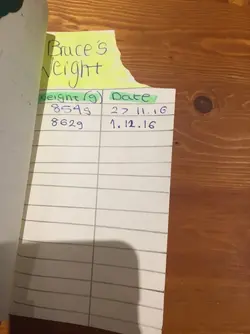 Bruce's
Weight
Weight (g) Date
854g 27.11.16
862g 1.12.16